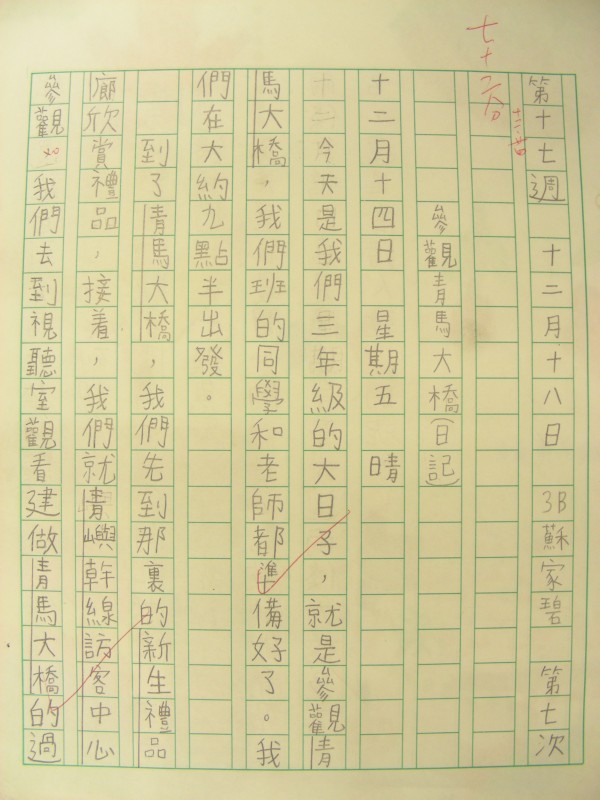 第十七週 十二月十八日 3B 蘇家碧 第七次
七十二分
參觀青馬大橋(日記)
十二月十四日 星期五 晴
今天是我們三年級的大日子，就是參觀青
馬大橋，我們班的同學和老師都準備好了。我
們在大約九點半出發。
到了青馬大橋，我們先到那裏的新生禮品
廊欣賞禮品，接着，我們就青嶼幹線訪客中心
參觀。我們去到視聽室觀看建做青馬大橋的過